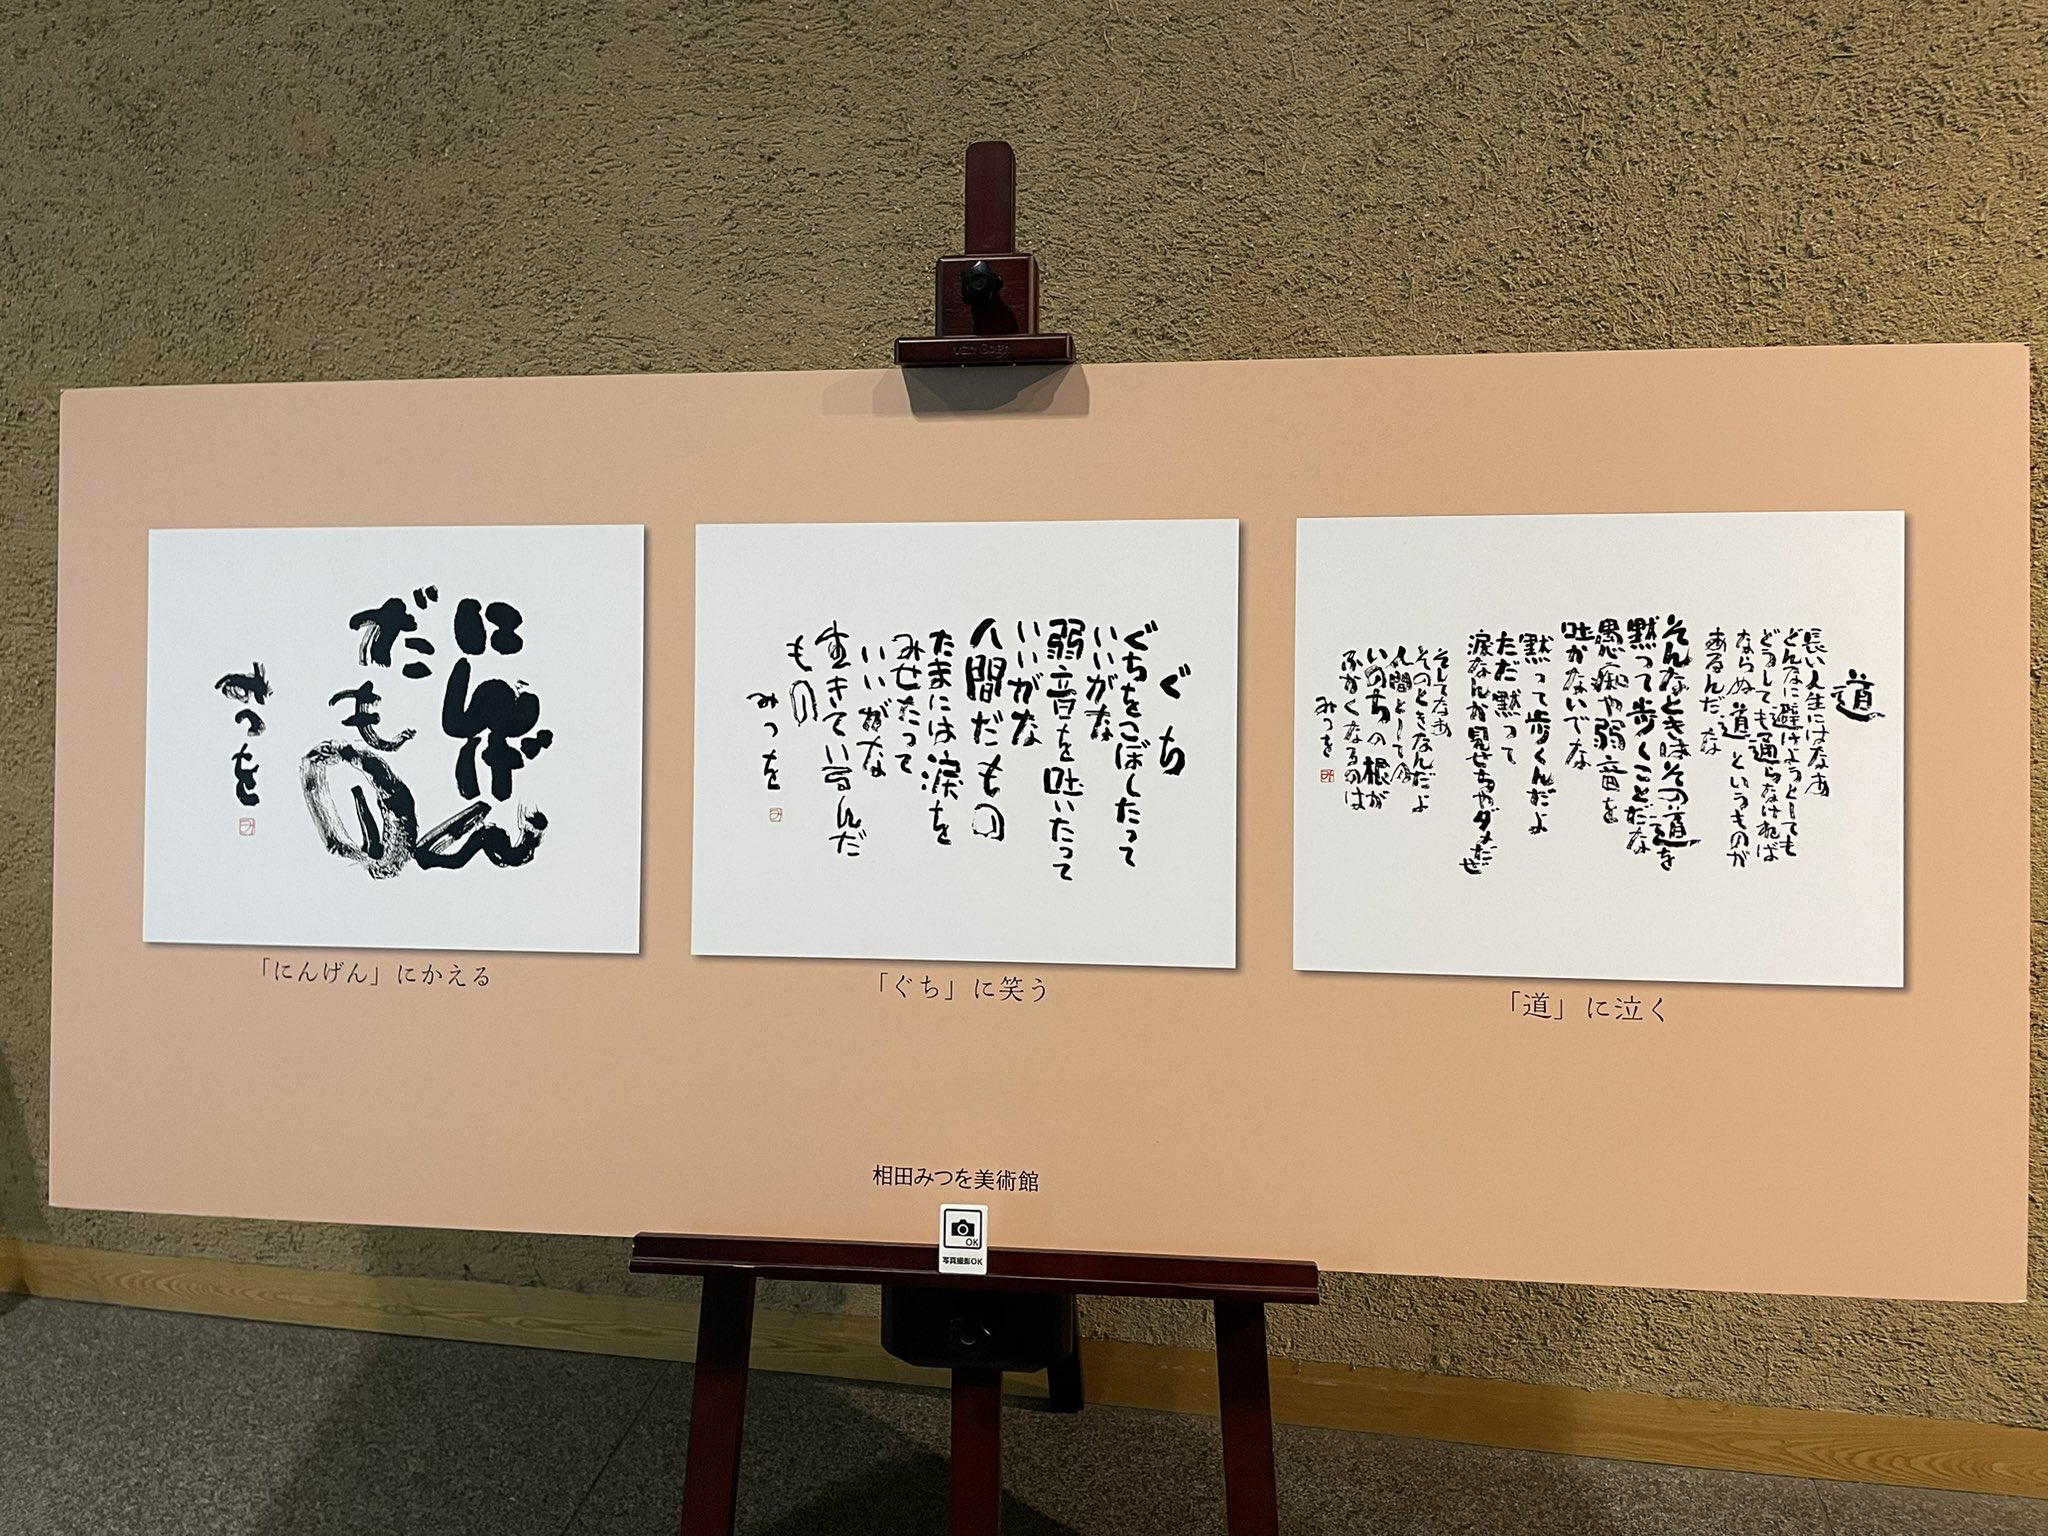 van Gogh
にんげん
だもの
みつを
「にんげん」にかえる
ぐち
ぐちをこぼしたって
いいがな
弱音を吐いたって
いいがな
人間だもの
たまには涙を
みせたって
いいがな
生きているんだ
もの
みつを
「ぐち」に笑う
道
長い人生にはなあ
どんなに避けようとしても
どうしても通らなければ
ならぬ道というものが
あるんだな
そんなときはその道を
黙って歩くことだな
愚痴や弱音を
吐かないでな
黙って歩くんだよ
ただ黙って
涙なんか見せちゃダメだぜ
そしてなあ
そのときなんだよ
人間としての
いのちの根が
ふかくなるのは
みつを
「道」に泣く
相田みつを美術館
OK
写真撮影OK